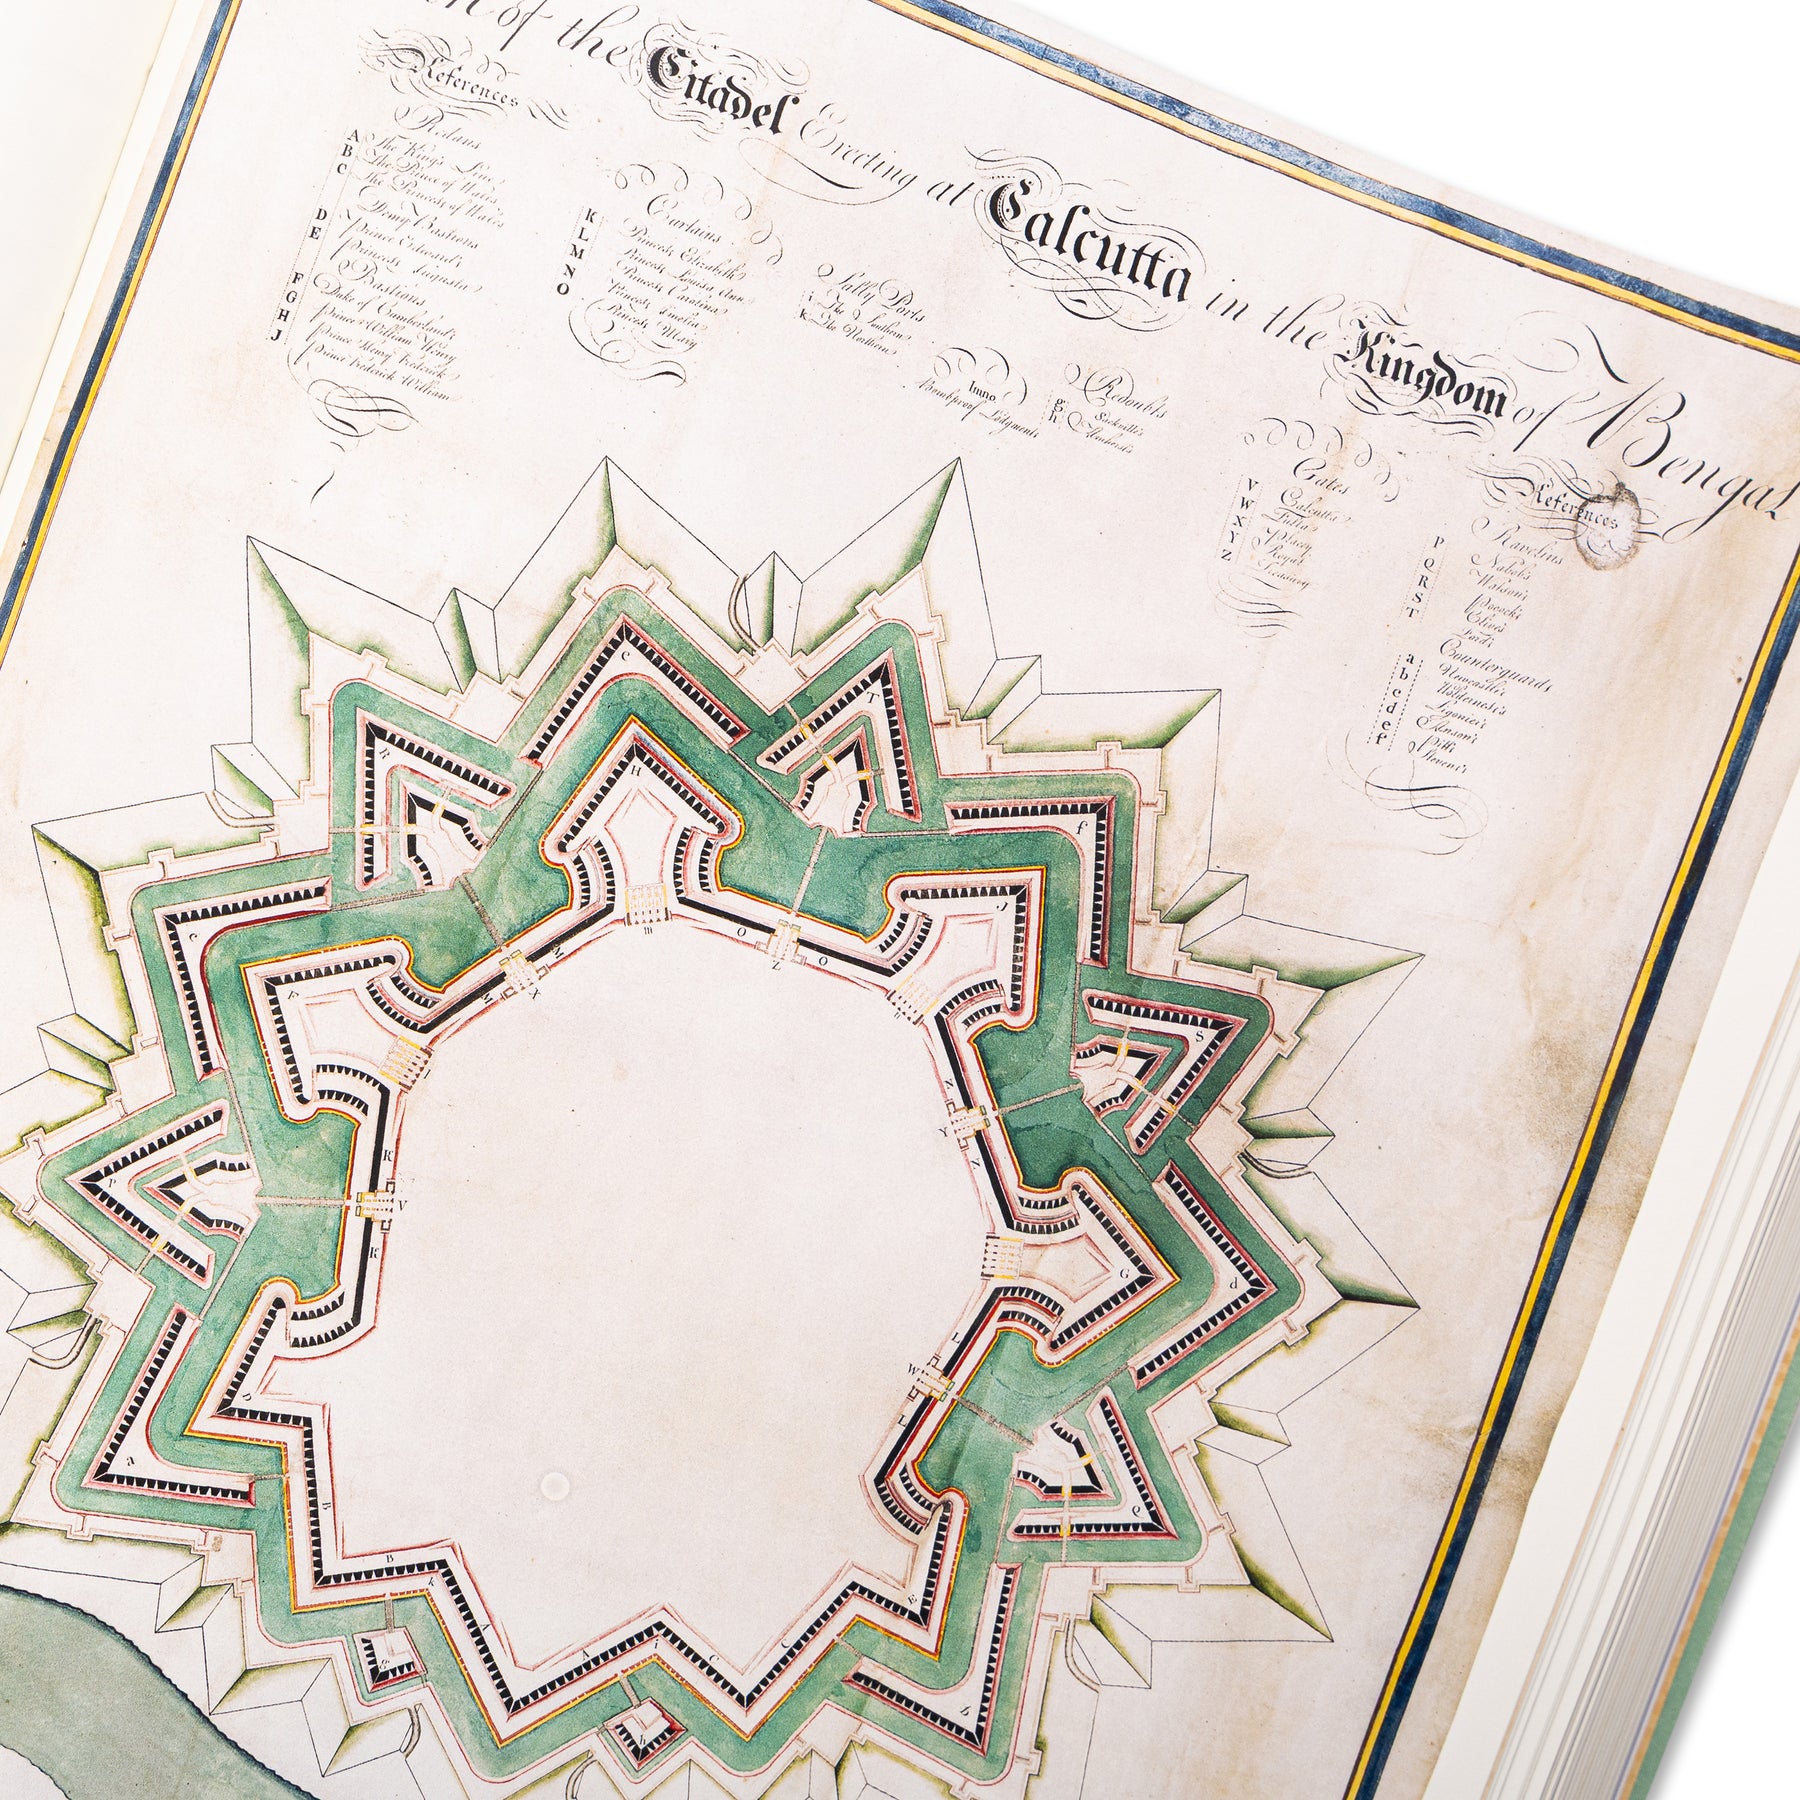 of the Citadel Erecting at Calcutta in the Kingdom of Bengal
References
Redans
A The King's Line
B The Prince of Wales
C The Princess of Wales
Demy Bastions
D Prince Edward's
E Princess Augusta
Bastions
F Duke of Cumberland's
G Prince William Henry
H Prince Henry Frederick
J Prince Frederick William
Curtains
K Princess Elizabeth
L Princess Louisa Ann
M Princess Carolina
N Princess Amelia
O Princess Mary
Sally Ports
i The Southern
k The Northern
lmno
Bombproof Lodgments
Redoubts
g Sackville's
h Amherst's
Gates
V Calcutta
W Fulta
X Placey
Y Royal
Z Treasury
References
Ravelins
P Nabob's
Q Watson's
R Pocock's
S Clive's
T Ford's
Counterguards
a Newcastle's
b Holderness's
c Ligonier's
d Anson's
e Pitt's
f Steven's
c
T
R
H
f
e
J
F
M
O
m
O
Z
M
X
n
S
N
Y
N
K
V
K
P
l
G
d
D
a
L
W
L
Q
B
B
k
A
A
i
C
C
E
g
h
b